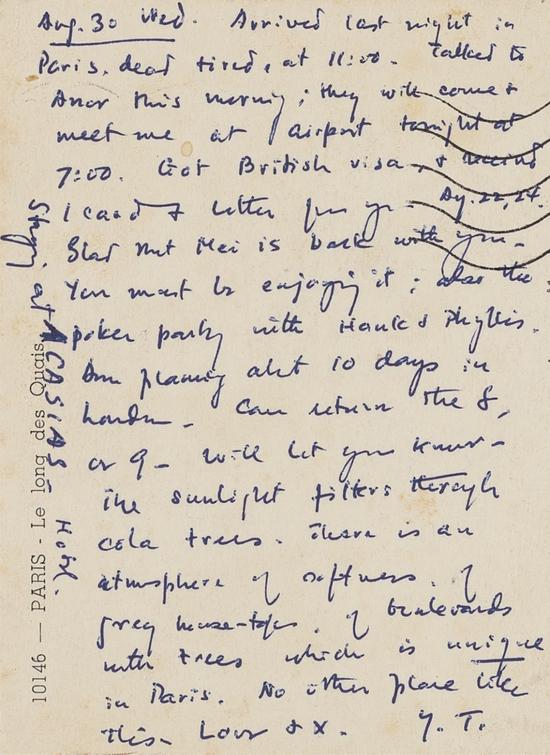 Aug. 30 Wed. Arrived last night in
Paris, dead tired, at 11:00. Talked to
this morning; they will come &
meet me at airport tonight at
7:00. Got British visa, &
1 card & letter from you - Ag. 22, 24.
Glad that Mei is back with you -
You must be enjoying it; also the
poker party with Hank & Phyllis.
Am planning abt 10 days in
London - Can return the 8,
or 9 - Will let you know -
The sunlight filters through
cola trees. There is an
atmosphere of softness, of
grey house-tops, of boulevards
with trees which is unique
in Paris. No other place like
this - Love & X. Y. T.
Stay at ACASIAS - Hotel.
10146 — PARIS - Le long des Quais.